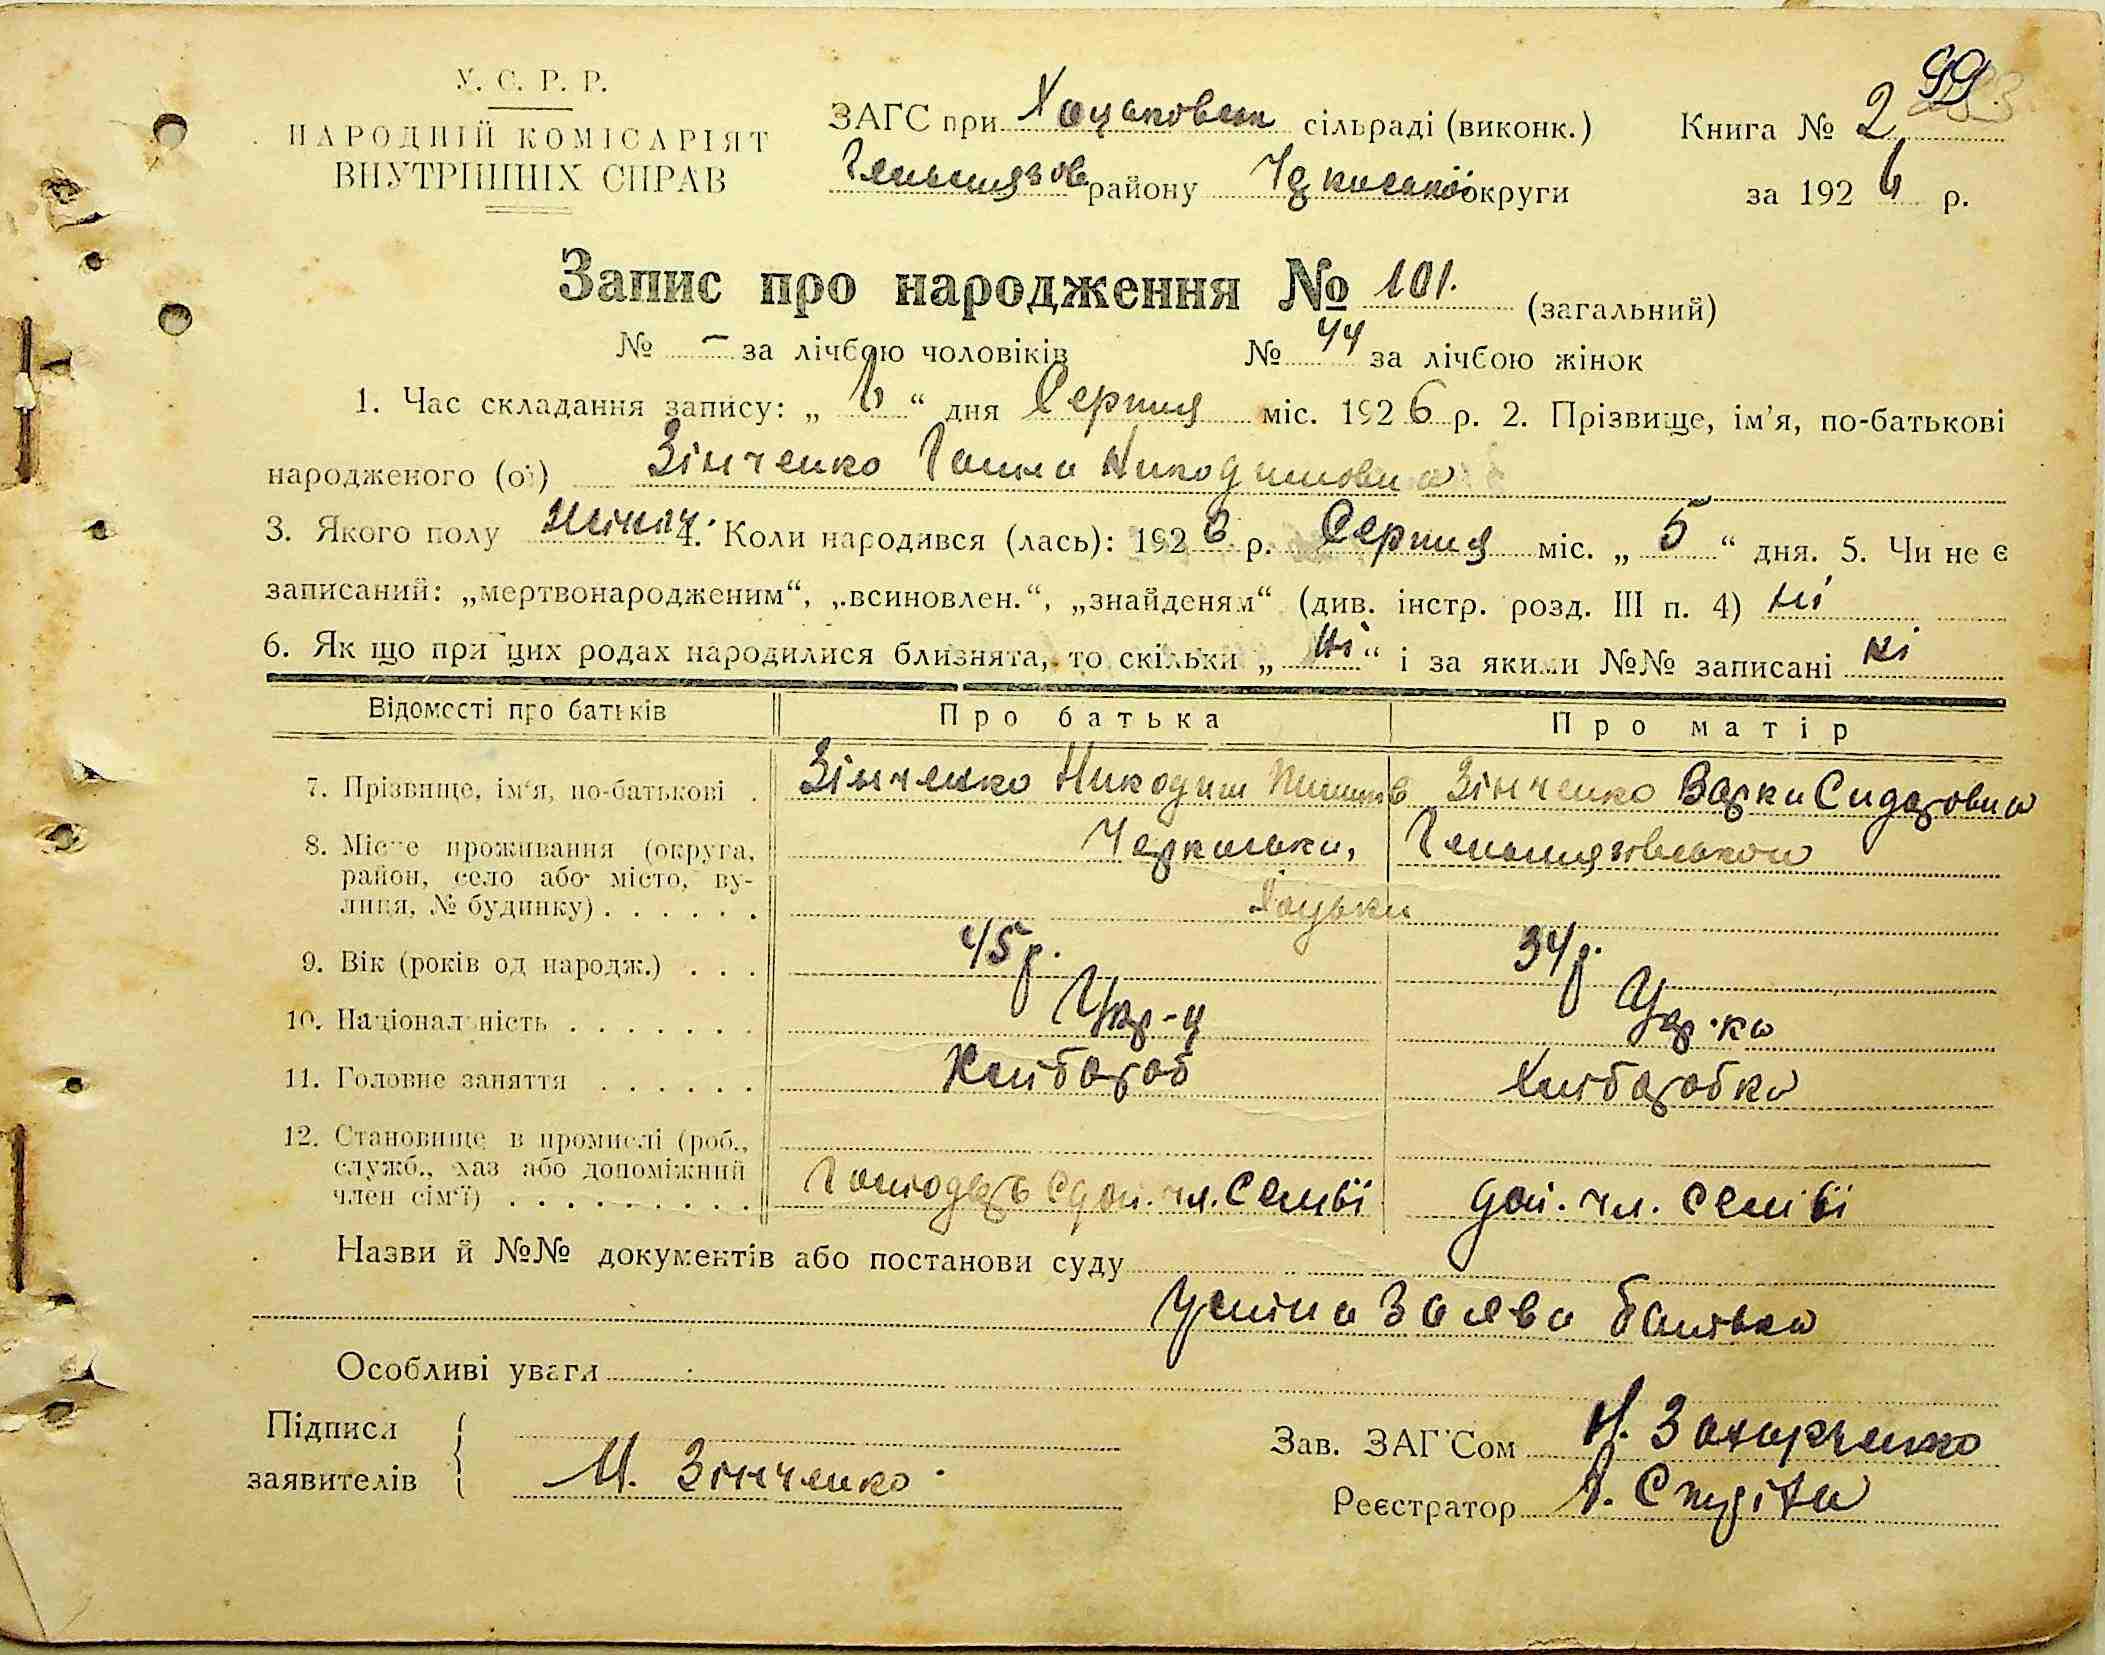 У. С. Р. Р.
НАРОДНІЙ КОМІСАРІЯТ
ВНУТРІШНІХ СПРАВ
ЗАГС при Хоцьковськ сільраді (виконк.)
Гельмязов району Чркаської округи
Книга № 2
99
за 1926 р.
Запис про народження № 101. (загальний)
№ – за лічбою чоловіків № 44 за лічбою жінок
1. Час складання запису: „ 6 “ дня Серпня міс. 1926 р. 2. Прізвище, ім'я, по-батькові
народженого (ої) Зінченко Ганна Никодимовна
3. Якого полу жіноч. 4. Коли народився (лась): 1926 р. Серпня міс. „ 5 “ дня. 5. Чи не є
записаний: „мертвонародженим“, „всиновлен.“, „знайденям“ (див. інстр. розд. III п. 4) ні
6. Як що при цих родах народилися близнята, то скільки „ ні “ і за якими №№ записані ні
Відомості про батьків Про батька Про матір
7. Прізвище, ім'я, по-батькові . Зінченко Никодим Зінченко Варка Сидоровна
8. Місце проживання (округа, Черкаська, Гельмязовською
район, село або місто, ву-
лиця, № будинку) . . . . . . Хоцьки
9. Вік (років од народж.) . . . 45 р. 34 р.
10. Національність . . . . . . . Укр-ц Укр-ка
11. Головне заняття . . . . . . Хлібороб Хліборобка
12. Становище в промислі (роб.,
служб., хаз або допоміжний
член сім'ї) . . . . . . . . . Господарь с доп. чл. семьї доп. чл. семьї
Назви й №№ документів або постанови суду
Усміна Заява батька
Особливі уваги
Підписи
заявителів М. Зінченко.
Зав. ЗАГСом Н. Захарченко
Реєстратор